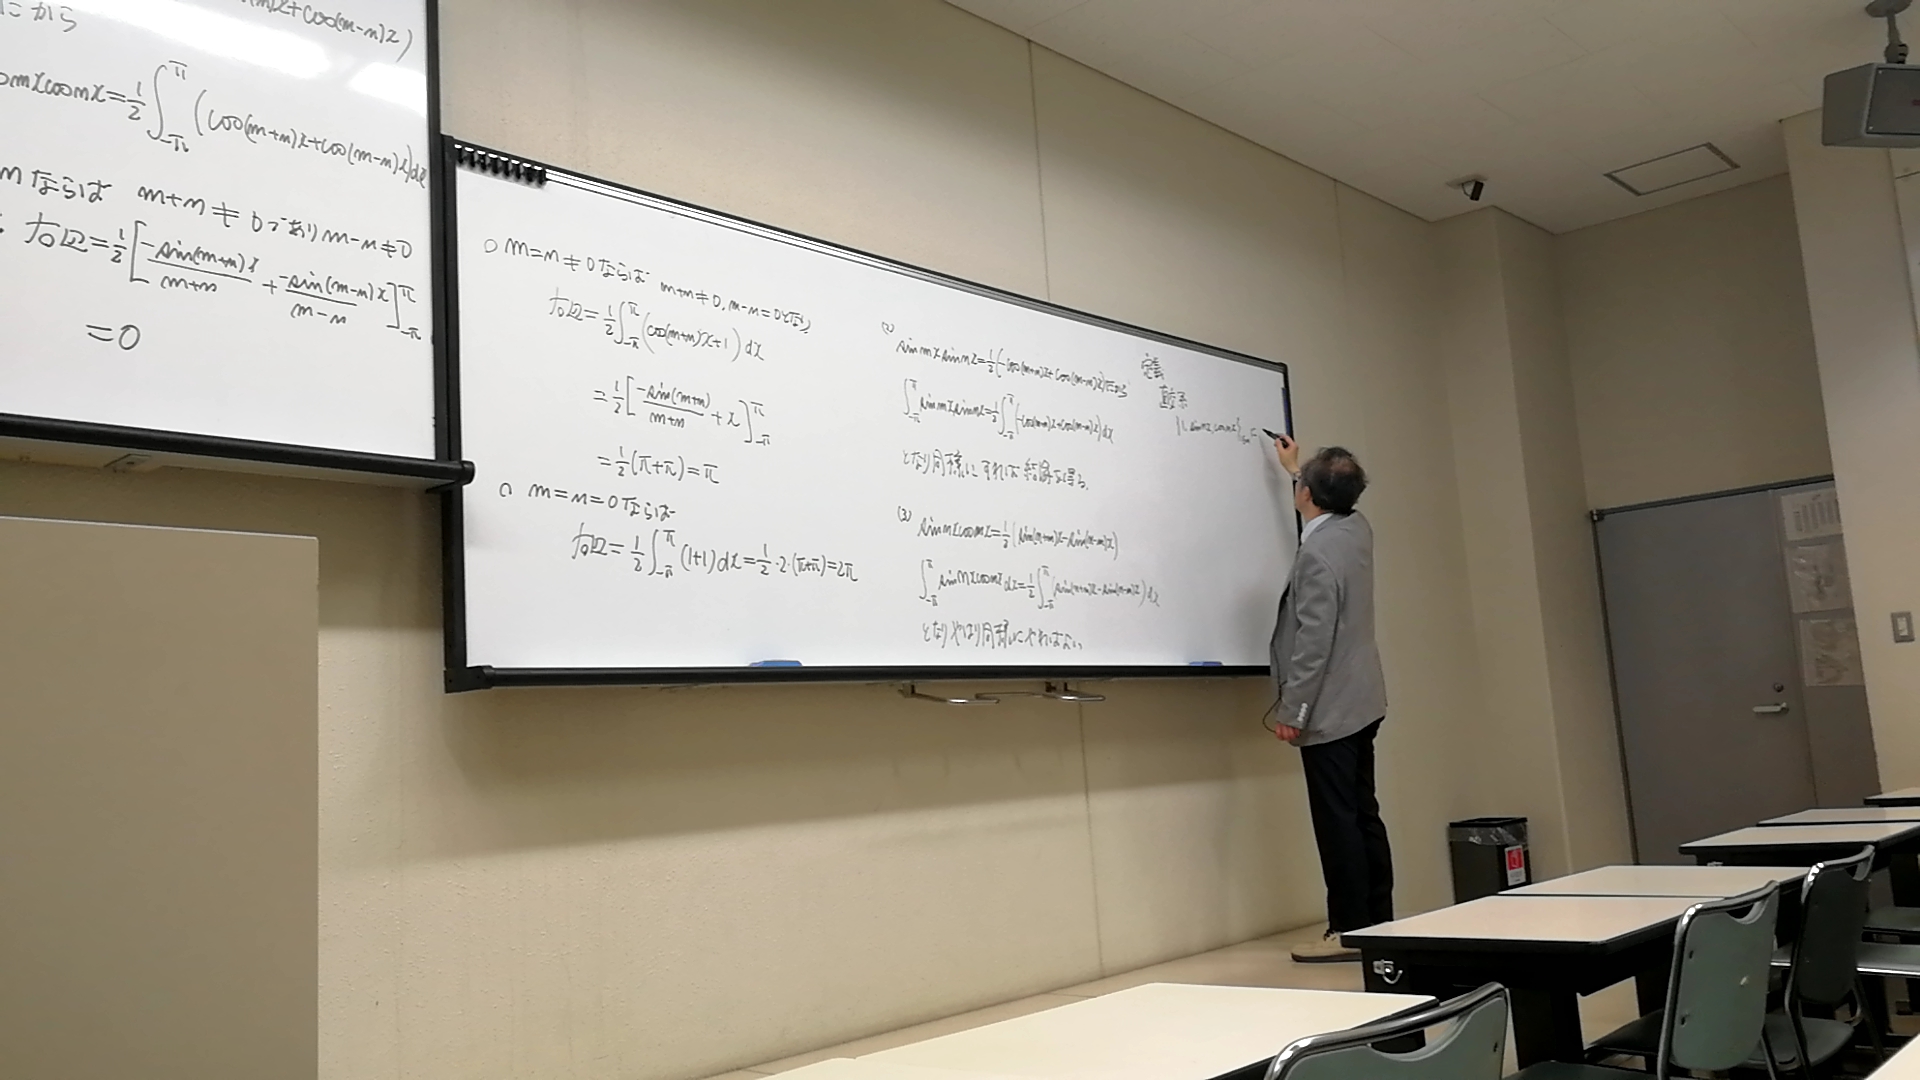 にから
mx+cos(m-n)x)
cosmxcosnx=1/2∫_{-π}^{π}(cos(m+n)x+cos(m-n)x)dx
nならば m+n≠0であり m-n≠0
右辺=1/2[-sin(m+n)x/(m+n)+-sin(m-n)x/(m-n)]_{-π}^{π}
=0
○ m=n≠0ならば m+n≠0, m-n=0となり
右辺=1/2∫_{-π}^{π}(cos(m+n)x+1)dx
=1/2[-sin(m+n)/(m+n)+x]_{-π}^{π}
=1/2(π+π)=π
○ m=n=0ならば
右辺=1/2∫_{-π}^{π}(1+1)dx=1/2・2・(π+π)=2π
(2)
sinmxsinnx=1/2(-cos(m+n)x+cos(m-n)x)だから
∫_{-π}^{π}sinmxsinnx=1/2∫_{-π}^{π}(-cos(m+n)x+cos(m-n)x)dx
となり同様にすれば結論を得る.
(3)
sinmxcosnx=1/2(sin(m+n)x-sin(n-m)x)
∫_{-π}^{π}sinmxcosnxdx=1/2∫_{-π}^{π}(sin(m+n)x-sin(n-m)x)dx
となりやはり同様にやればよい
定義
直交系
{1, sinnx, cosnx}